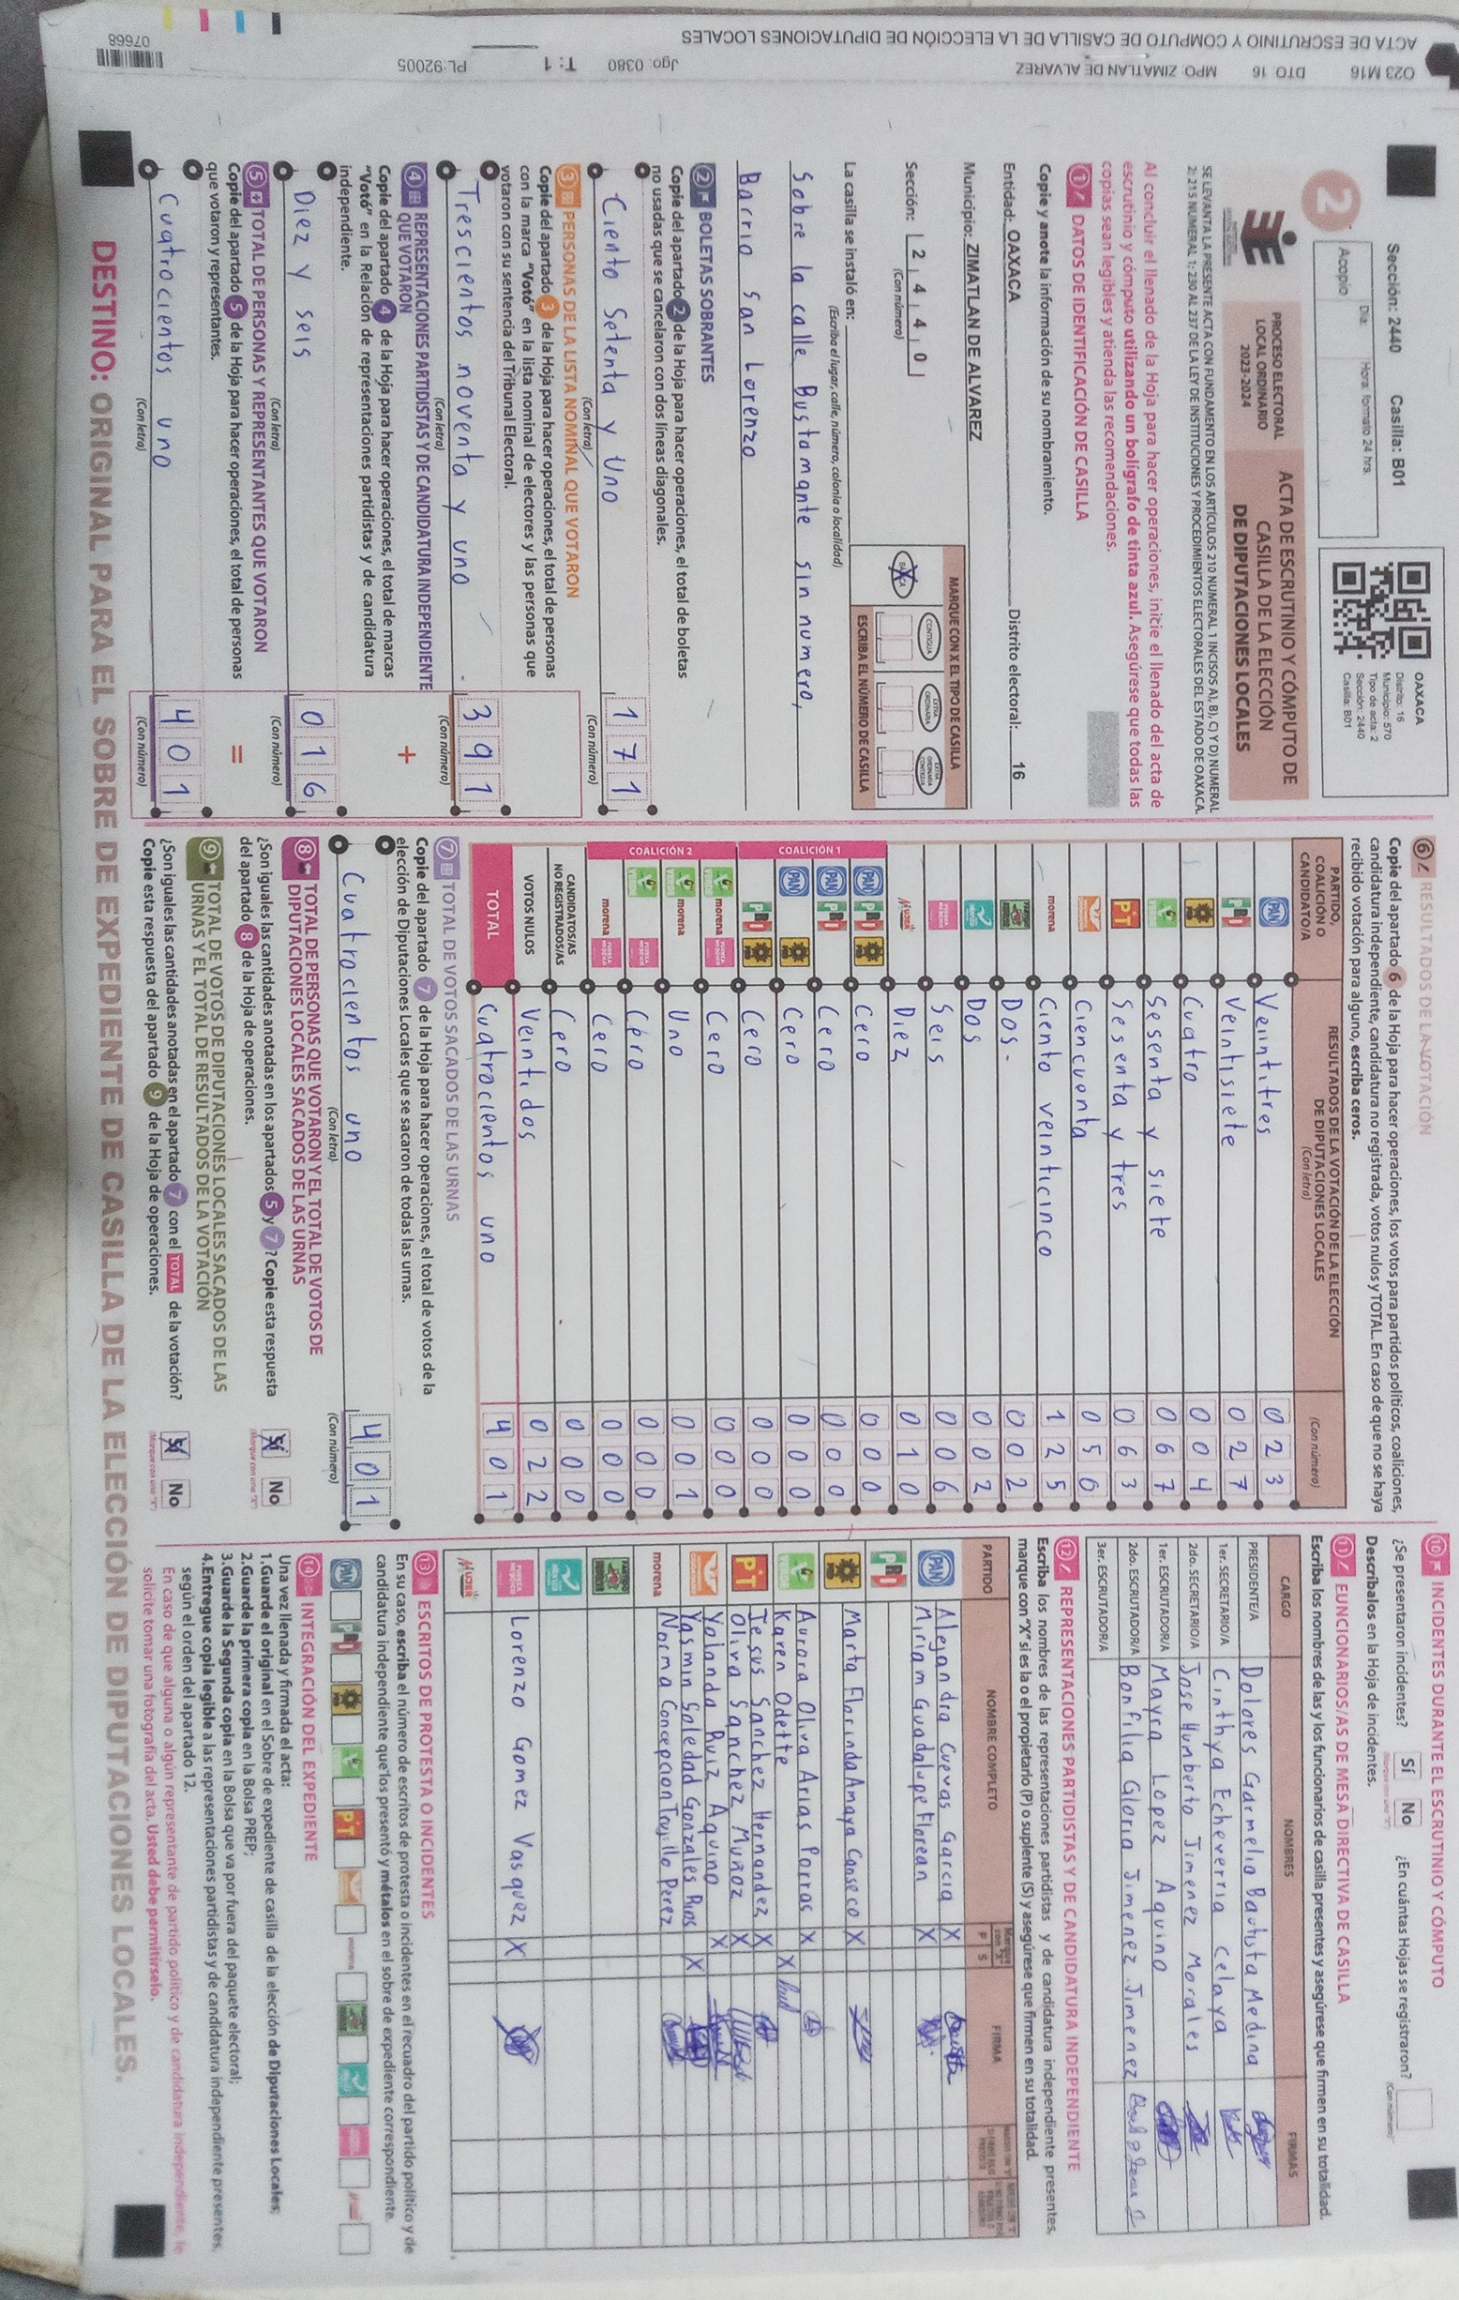 O23 M16 DTO 16 MPO: ZIMATLAN DE ALVAREZ Jgo: 0380 T: 1 PL:92005 07668
ACTA DE ESCRUTINIO Y CÓMPUTO DE CASILLA DE LA ELECCIÓN DE DIPUTACIONES LOCALES
Sección: 2440 Casilla: B01
2
Acopio
Día:
Hora: formato 24 hrs.
OAXACA
Distrito: 16
Municipio: 570
Tipo de acta: 2
Sección: 2440
Casilla: B01
PROCESO ELECTORAL
LOCAL ORDINARIO
2023-2024
ACTA DE ESCRUTINIO Y CÓMPUTO DE
CASILLA DE LA ELECCIÓN
DE DIPUTACIONES LOCALES
SE LEVANTA LA PRESENTE ACTA CON FUNDAMENTO EN LOS ARTÍCULOS 210 NUMERAL 1 INCISOS A), B), C) Y D) NUMERAL
2; 215 NUMERAL 1; 230 AL 237 DE LA LEY DE INSTITUCIONES Y PROCEDIMIENTOS ELECTORALES DEL ESTADO DE OAXACA.
Al concluir el llenado de la Hoja para hacer operaciones, inicie el llenado del acta de
escrutinio y cómputo utilizando un bolígrafo de tinta azul. Asegúrese que todas las
copias sean legibles y atienda las recomendaciones.
1 DATOS DE IDENTIFICACIÓN DE CASILLA
Copie y anote la información de su nombramiento.
Entidad: OAXACA Distrito electoral: 16
Municipio: ZIMATLAN DE ALVAREZ
Sección: 2 4 4 0
(Con número)
MARQUE CON X EL TIPO DE CASILLA
BÁSICA CONTIGUA EXTRAORDINARIA EXTRAORDINARIA CONTIGUA
X
ESCRIBA EL NÚMERO DE CASILLA
La casilla se instaló en:
(Escriba el lugar, calle, número, colonia o localidad)
Sobre la calle Bustamante sin numero,
Barrio San Lorenzo
2 BOLETAS SOBRANTES
Copie del apartado 2 de la Hoja para hacer operaciones, el total de boletas
no usadas que se cancelaron con dos líneas diagonales.
Ciento Setenta y Uno 1 7 1
(Con letra) (Con número)
3 PERSONAS DE LA LISTA NOMINAL QUE VOTARON
Copie del apartado 3 de la Hoja para hacer operaciones, el total de personas
con la marca "Votó" en la lista nominal de electores y las personas que
votaron con su sentencia del Tribunal Electoral.
Trescientos noventa y uno 3 9 1
(Con letra) (Con número)
4 REPRESENTACIONES PARTIDISTAS Y DE CANDIDATURA INDEPENDIENTE
QUE VOTARON
Copie del apartado 4 de la Hoja para hacer operaciones, el total de marcas
"Votó" en la Relación de representaciones partidistas y de candidatura
independiente.
+
Diez y seis 0 1 6
(Con letra) (Con número)
5 TOTAL DE PERSONAS Y REPRESENTANTES QUE VOTARON
Copie del apartado 5 de la Hoja para hacer operaciones, el total de personas
que votaron y representantes.
=
Cuatrocientos uno 4 0 1
(Con letra) (Con número)
6 RESULTADOS DE LA VOTACIÓN
Copie del apartado 6 de la Hoja para hacer operaciones, los votos para partidos políticos, coaliciones,
candidatura independiente, candidatura no registrada, votos nulos y TOTAL. En caso de que no se haya
recibido votación para alguno, escriba ceros.
PARTIDO, COALICIÓN O CANDIDATO/A
RESULTADOS DE LA VOTACIÓN DE LA ELECCIÓN DE DIPUTACIONES LOCALES
(Con letra) (Con número)
PAN Veintitres 0 2 3
PRI Veintisiete 0 2 7
PRD Cuatro 0 0 4
VERDE Sesenta y siete 0 6 7
PT Sesenta y tres 0 6 3
Ciencuenta 0 5 0
morena Ciento veinticinco 1 2 5
Dos. 0 0 2
Dos 0 0 2
Seis 0 0 6
MUJER Diez 0 1 0
COALICIÓN 1
PAN PRI PRD Cero 0 0 0
PAN PRI Cero 0 0 0
PAN PRD Cero 0 0 0
PRI PRD Cero 0 0 0
COALICIÓN 2
VERDE morena FUERZA MÉXICO Cero 0 0 0
VERDE morena Uno 0 0 1
VERDE FUERZA MÉXICO Cero 0 0 0
morena FUERZA MÉXICO Cero 0 0 0
CANDIDATOS/AS NO REGISTRADOS/AS Cero 0 0 0
VOTOS NULOS Veintidos 0 2 2
TOTAL Cuatrocientos uno 4 0 1
7 TOTAL DE VOTOS SACADOS DE LAS URNAS
Copie del apartado 7 de la Hoja para hacer operaciones, el total de votos de la
elección de Diputaciones Locales que se sacaron de todas las urnas.
Cuatrocientos uno 4 0 1
(Con letra) (Con número)
8 TOTAL DE PERSONAS QUE VOTARON Y EL TOTAL DE VOTOS DE
DIPUTACIONES LOCALES SACADOS DE LAS URNAS
¿Son iguales las cantidades anotadas en los apartados 5 y 7? Copie esta respuesta
del apartado 8 de la Hoja de operaciones.
Sí X No
9 TOTAL DE VOTOS DE DIPUTACIONES LOCALES SACADOS DE LAS
URNAS Y EL TOTAL DE RESULTADOS DE LA VOTACIÓN
¿Son iguales las cantidades anotadas en el apartado 7 con el TOTAL de la votación?
Copie esta respuesta del apartado 9 de la Hoja de operaciones.
Sí X No
10 INCIDENTES DURANTE EL ESCRUTINIO Y CÓMPUTO
¿Se presentaron incidentes? Sí No ¿En cuántas Hojas se registraron?
(Con número)
Descríbalos en la Hoja de incidentes.
11 FUNCIONARIOS/AS DE MESA DIRECTIVA DE CASILLA
Escriba los nombres de las y los funcionarios de casilla presentes y asegúrese que firmen en su totalidad.
CARGO NOMBRES FIRMAS
PRESIDENTE/A Dolores Garmelia Bautista Medina
1er. SECRETARIO/A Cinthya Echeverria Celaya
2do. SECRETARIO/A Jose Humberto Jimenez Morales
1er. ESCRUTADOR/A Mayra Lopez Aquino
2do. ESCRUTADOR/A Bonfilia Gloria Jimenez Jimenez
3er. ESCRUTADOR/A
12 REPRESENTACIONES PARTIDISTAS Y DE CANDIDATURA INDEPENDIENTE
Escriba los nombres de las representaciones partidistas y de candidatura independiente presentes,
marque con "X" si es la o el propietario (P) o suplente (S) y asegúrese que firmen en su totalidad.
PARTIDO NOMBRE COMPLETO Marque con "X" P S FIRMA
PAN Alejandra Cuevas Garcia X
Miriam Guadalupe Florean X
PRI
PRD Marta Florinda Amaya Caseco X
VERDE Aurora Oliva Arias Porras X
Karen Odette X
PT Jesus Sanchez Hernandez X
Oliva Sanchez Muñoz X
Yolanda Ruiz Aquino X
Yasmin Soledad Gonzales Rios X
morena Norma Concepcion Trujillo Perez
Lorenzo Gomez Vasquez X
MUJER
13 ESCRITOS DE PROTESTA O INCIDENTES
En su caso, escriba el número de escritos de protesta o incidentes en el recuadro del partido político y de
candidatura independiente que los presentó y métalos en el sobre de expediente correspondiente.
PAN PRI PRD VERDE PT morena
14 INTEGRACIÓN DEL EXPEDIENTE
Una vez llenada y firmada el acta:
1.Guarde el original en el Sobre de expediente de casilla de la elección de Diputaciones Locales;
2.Guarde la primera copia en la Bolsa PREP;
3.Guarde la Segunda copia en la Bolsa que va por fuera del paquete electoral;
4.Entregue copia legible a las representaciones partidistas y de candidatura independiente presentes,
según el orden del apartado 12.
En caso de que alguna o algún representante de partido político y de candidatura independiente, le
solicite tomar una fotografía del acta. Usted debe permitírselo.
DESTINO: ORIGINAL PARA EL SOBRE DE EXPEDIENTE DE CASILLA DE LA ELECCIÓN DE DIPUTACIONES LOCALES.